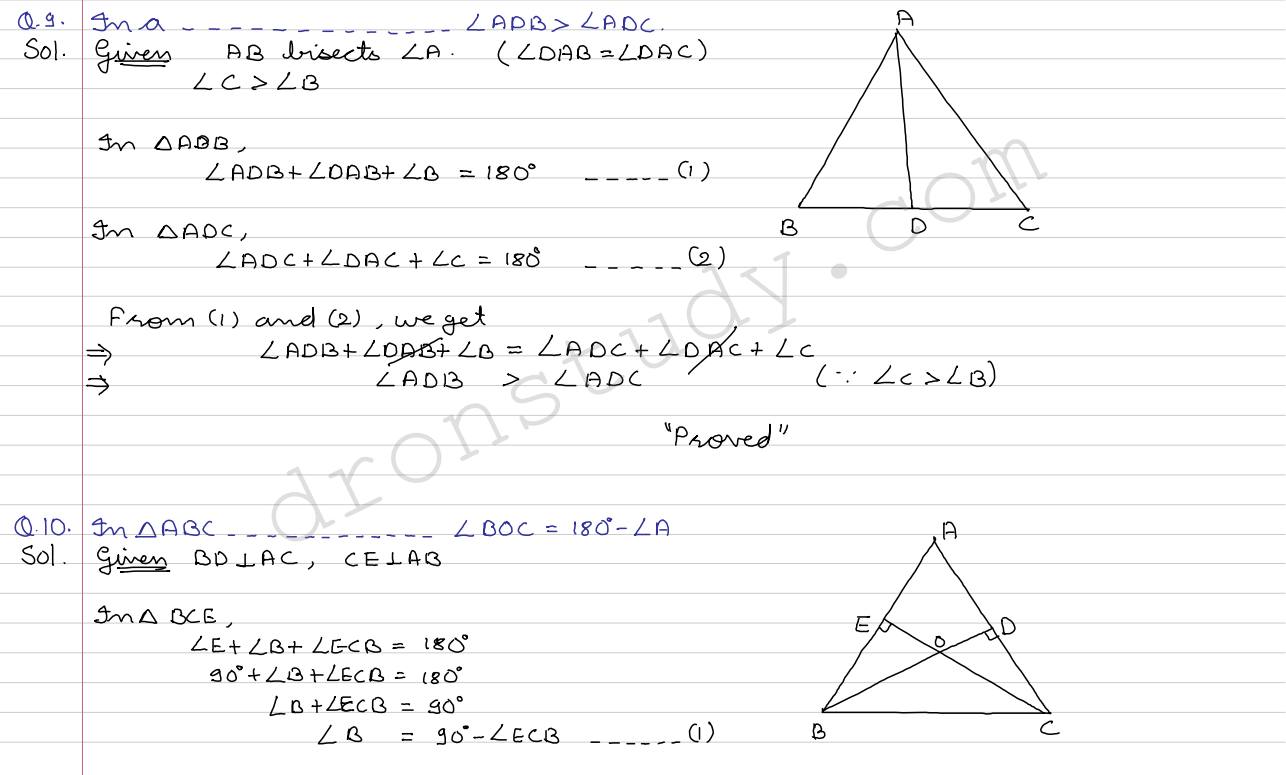 Q.9. In a - - - - - - - - - - - - - - ∠ADB > ∠ADC.
Sol. Given AB bisects ∠A. (∠DAB = ∠DAC)
∠C > ∠B
In △ADB,
∠ADB + ∠DAB + ∠B = 180° - - - - - (1)
In △ADC,
∠ADC + ∠DAC + ∠C = 180° - - - - - (2)
From (1) and (2), we get
⇒ ∠ADB + ∠DAB + ∠B = ∠ADC + ∠DAC + ∠C
⇒ ∠ADB > ∠ADC (∵ ∠C > ∠B)
"Proved"
A
B D C
Q.10. In △ABC - - - - - - - - - - - - ∠BOC = 180° - ∠A
Sol. Given BD ⊥ AC, CE ⊥ AB
In △ BCE,
∠E + ∠B + ∠ECB = 180°
90° + ∠B + ∠ECB = 180°
∠B + ∠ECB = 90°
∠B = 90° - ∠ECB - - - - - - (1)
A
E D
O
B C
dronstudy.com